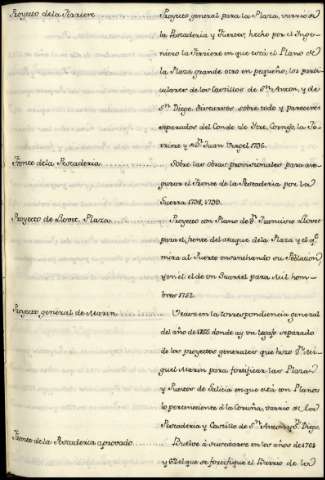 Proyecto de la Ferriere
Proyecto general para la Plaza, varrio de
la Pescaderia y Fuertes, hecho por el Inge-
niero la Ferriere en que está el Plano de
la Plaza grande otro en pequeño, los parti-
culares de los Castillos de Sn. Anton, y de
Sn. Diego. discursos sobre todo y pareceres
separados del Conde de Itre, Cornejo, la Fe-
rriere y Dn. Juan Vergel 1736.
Frente de la Pescaderia
Sobre las obras provisionales para ase-
gurar el Frente de la Pescaderia por la
Guerra 1739, 1730.
Proyecto de Llovet. Plaza
Proyecto con Plano de Dn. Francisco Llovet
para el frente del ataque de la Plaza y el qe.
mira al Puerto ensanchando su Poblacion
y en el de un Quartel para mil hom-
bres 1752.
Proyecto general de Marin
Vease en la correspondencia general
del año de 1755 donde ay un legajo separado
de los proyectos generales que hizo Dn. Mi-
guel Marin para fortificar las Plazas
y Puertos de Galicia en que está con Planos
lo perteneciente á la Coruña, varrio de la
Pescaderia y Castillo de Sn. Anton y Sn. Diego.
Frente de la Pescaderia aprovado
en los años de 1764
y el que se fortifique el Barrio de la